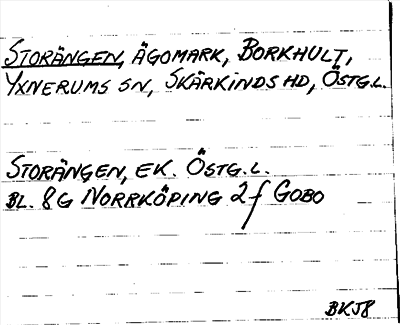 STORÄNGEN, ÄGOMARK, BORKHULT,
YXNERUMS SN, SKÄRKINDS HD, ÖSTG.L.
STORÄNGEN, EK. ÖSTG.L.
BL. 8G NORRKÖPING 2f GOBO
BKJ8